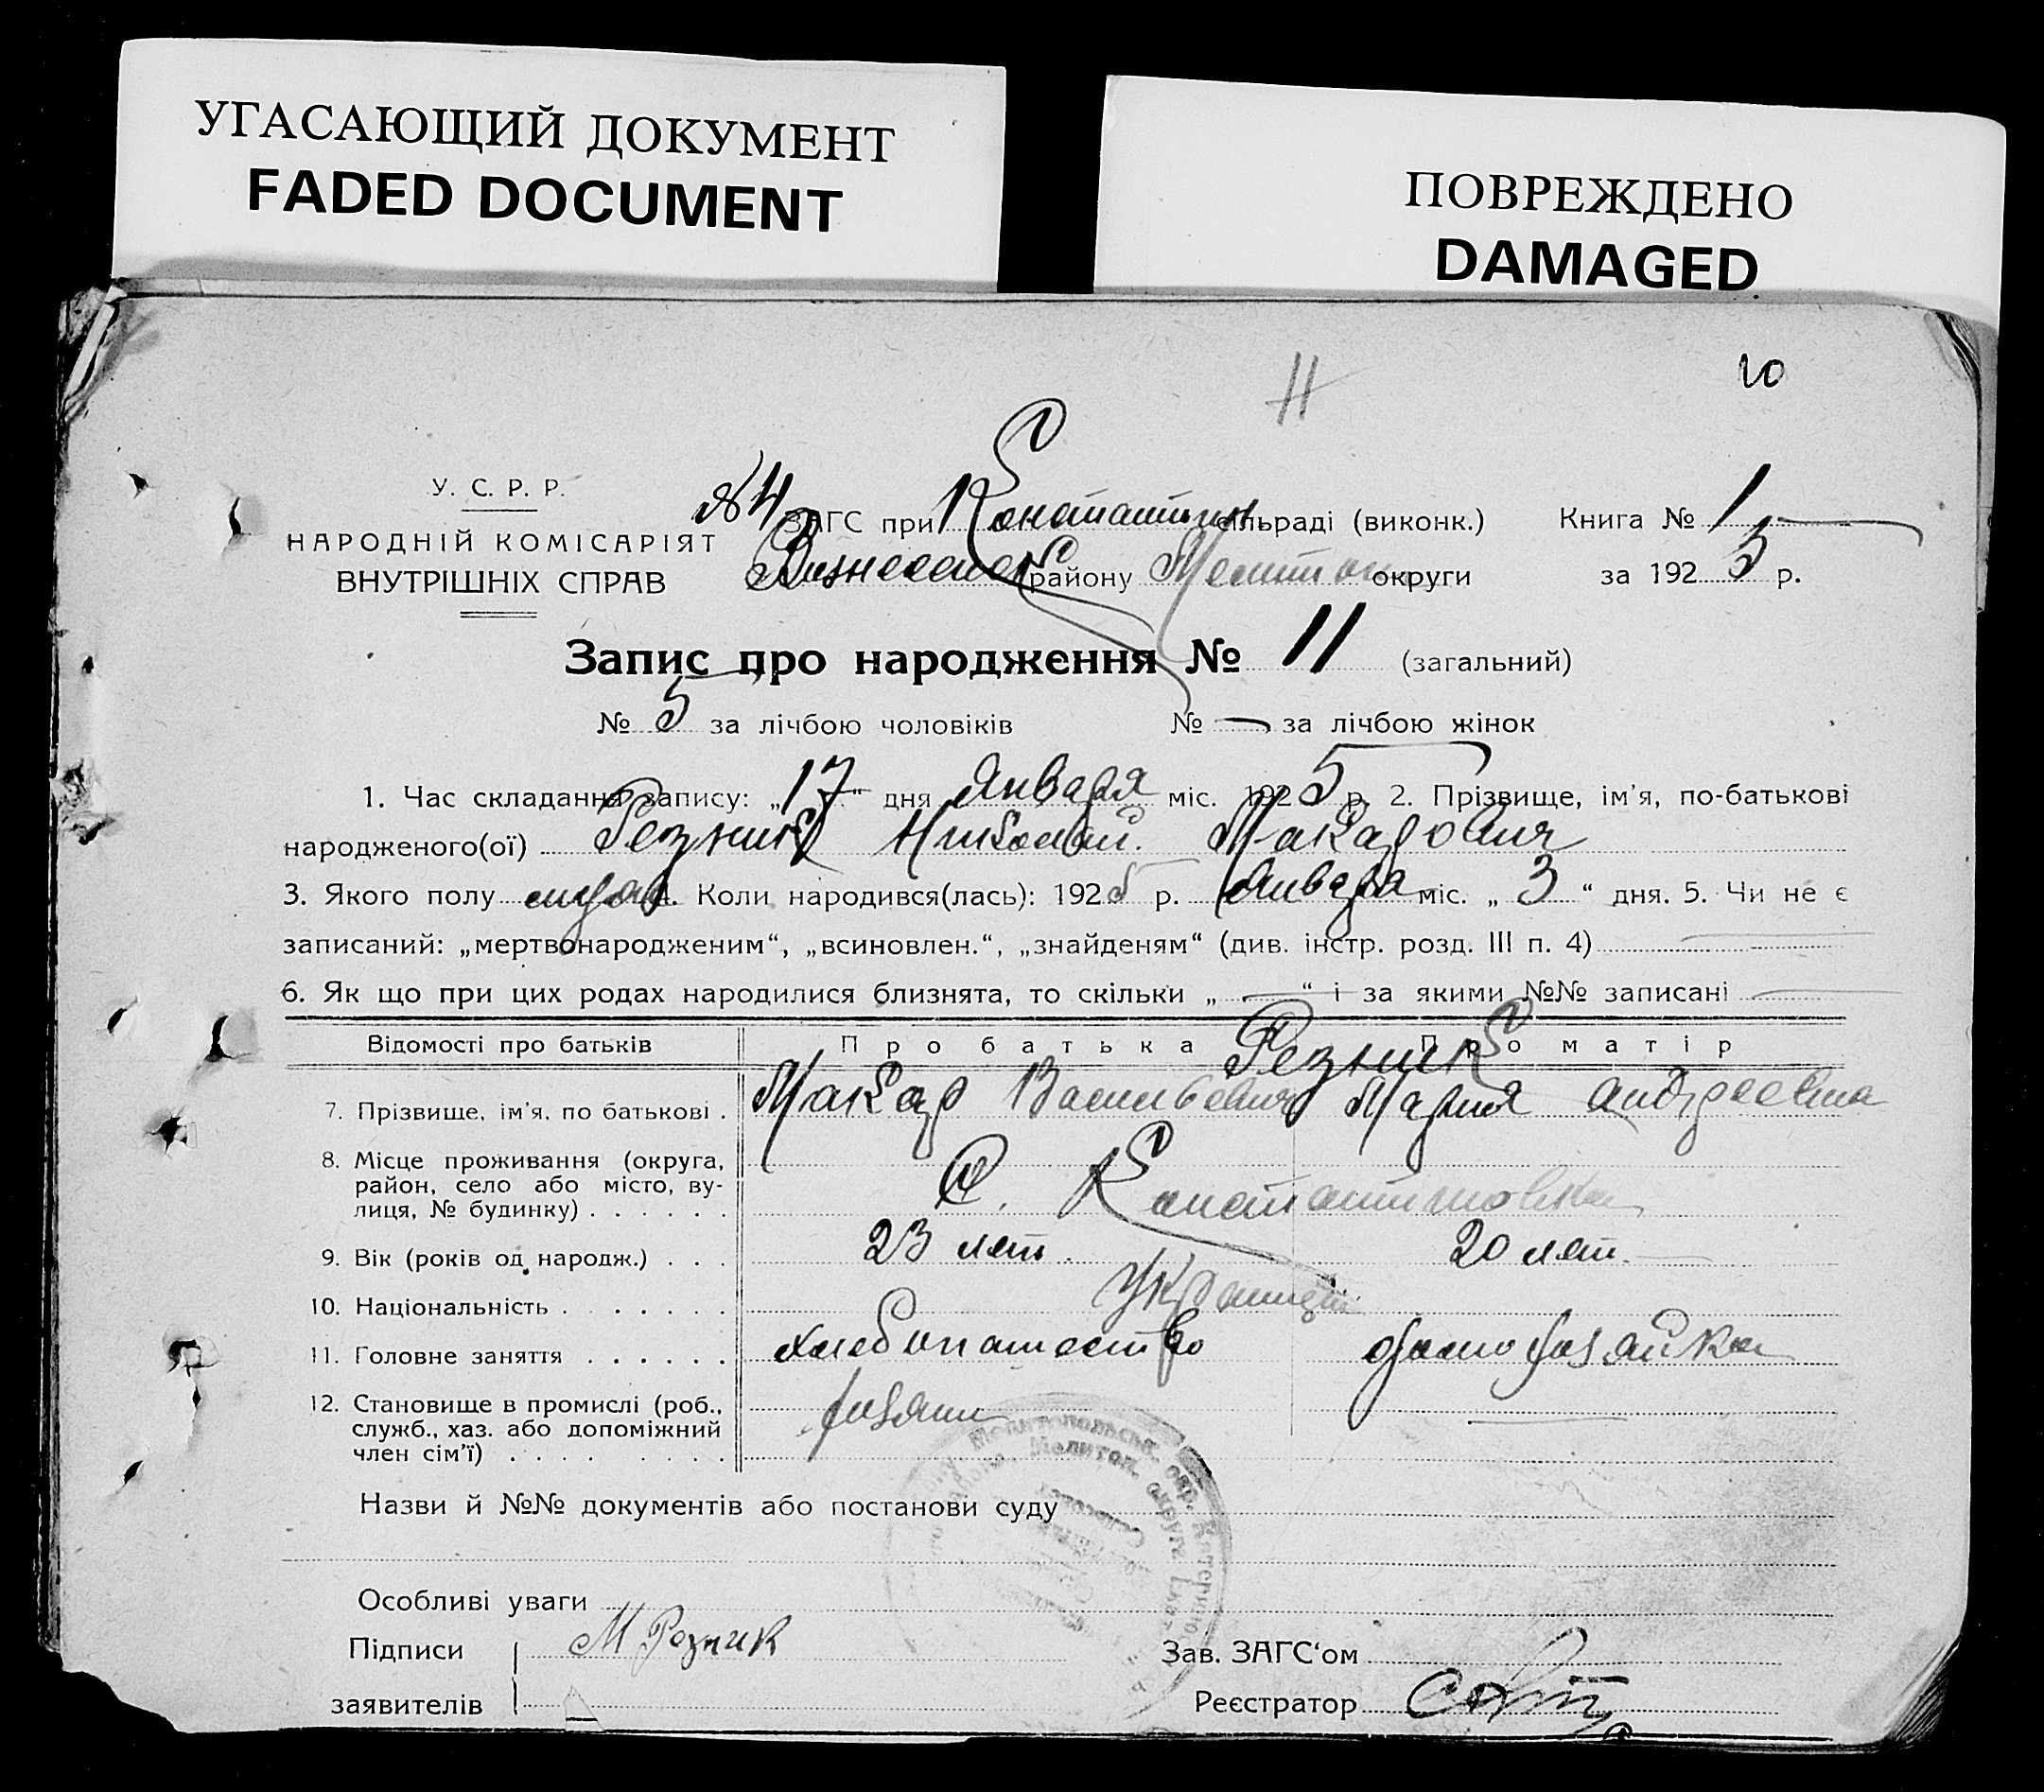 УГАСАЮЩИЙ ДОКУМЕНТ
FADED DOCUMENT
ПОВРЕЖДЕНО
DAMAGED
11
10
У. С. Р. Р.
НАРОДНІЙ КОМІСАРІЯТ
ВНУТРІШНІХ СПРАВ
№4 ЗАГС при Константин. сільраді (виконк.) Книга № 1
району Мелитоп округи за 1925 р.
Запис про народження № 11 (загальний)
№ 5 за лічбою чоловіків № — за лічбою жінок
1. Час складання запису: „17“ дня Января міс. 1925 р. 2. Прізвище, ім’я, по-батькові
народженого(ої) Резник Николай. Макарович
3. Якого полу муж. 4. Коли народився(лась): 1925 р. Января міс. „3“ дня. 5. Чи не є
записаний: „мертвонародженим“, „всиновлен.“, „знайденям“ (див. інстр. розд. III п. 4)
6. Як що при цих родах народилися близнята, то скільки „ — “ і за якими №№ записані
Відомості про батьків Про батька Про матір
Резник
7. Прізвище, ім’я, по батькові . Макар Васильевич Мария Андреевна
8. Місце проживання (округа,
район, село або місто, ву-
лиця, № будинку) . . . . . . С. Константиновка
9. Вік (років од народж.) . . . 23 лет. 20 лет.
10. Національність . . . . . . . Украинцы
11. Головне заняття . . . . . . хлебопашество домохозяйка
12. Становище в промислі (роб.,
служб., хаз. або допоміжний
член сім’ї) . . . . . . . . хозяин
Назви й №№ документів або постанови суду
Особливі уваги
Підписи М Резник Зав. ЗАГС‘ом
заявителів Реєстратор